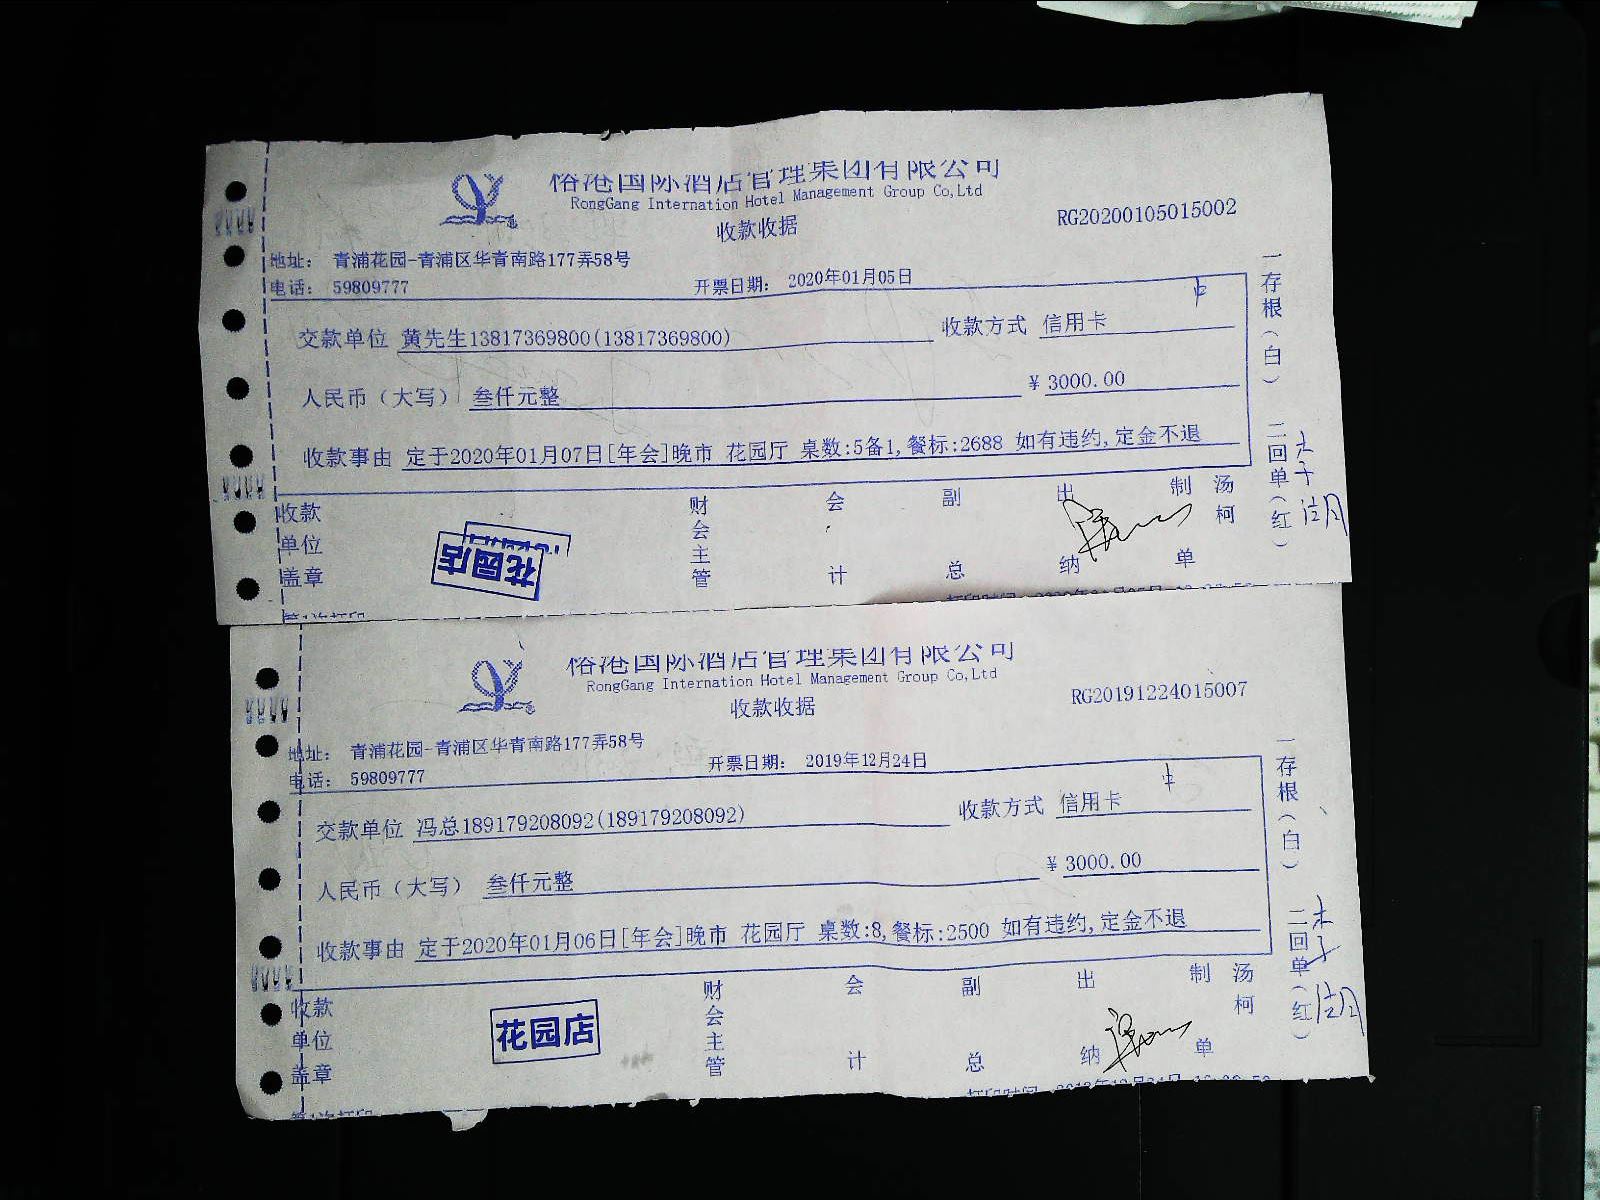 俗港国际酒店管理集团有限公司
RongGang Internation Hotel Management Group Co,Ltd
收款收据
RG20200105015002
地址： 青浦花园-青浦区华青南路177弄58号
电话： 59809777 开票日期： 2020年01月05日
交款单位 黄先生13817369800(13817369800) 收款方式 信用卡
人民币（大写） 叁仟元整 ¥ 3000.00
收款事由 定于2020年01月07日[年会]晚市 花园厅 桌数:5备1,餐标:2688 如有违约,定金不退
收款单位盖章 财会主管 会计 副总 出纳 制单 汤柯
花园店
一存根（白） 二回单（红）
第1次打印
俗港国际酒店管理集团有限公司
RongGang Internation Hotel Management Group Co,Ltd
收款收据
RG20191224015007
地址： 青浦花园-青浦区华青南路177弄58号
电话： 59809777 开票日期： 2019年12月24日
交款单位 冯总189179208092(189179208092) 收款方式 信用卡
人民币（大写） 叁仟元整 ¥ 3000.00
收款事由 定于2020年01月06日[年会]晚市 花园厅 桌数:8,餐标:2500 如有违约,定金不退
收款单位盖章 财会主管 会计 副总 出纳 制单 汤柯
花园店
一存根（白） 二回单（红）
第1次打印